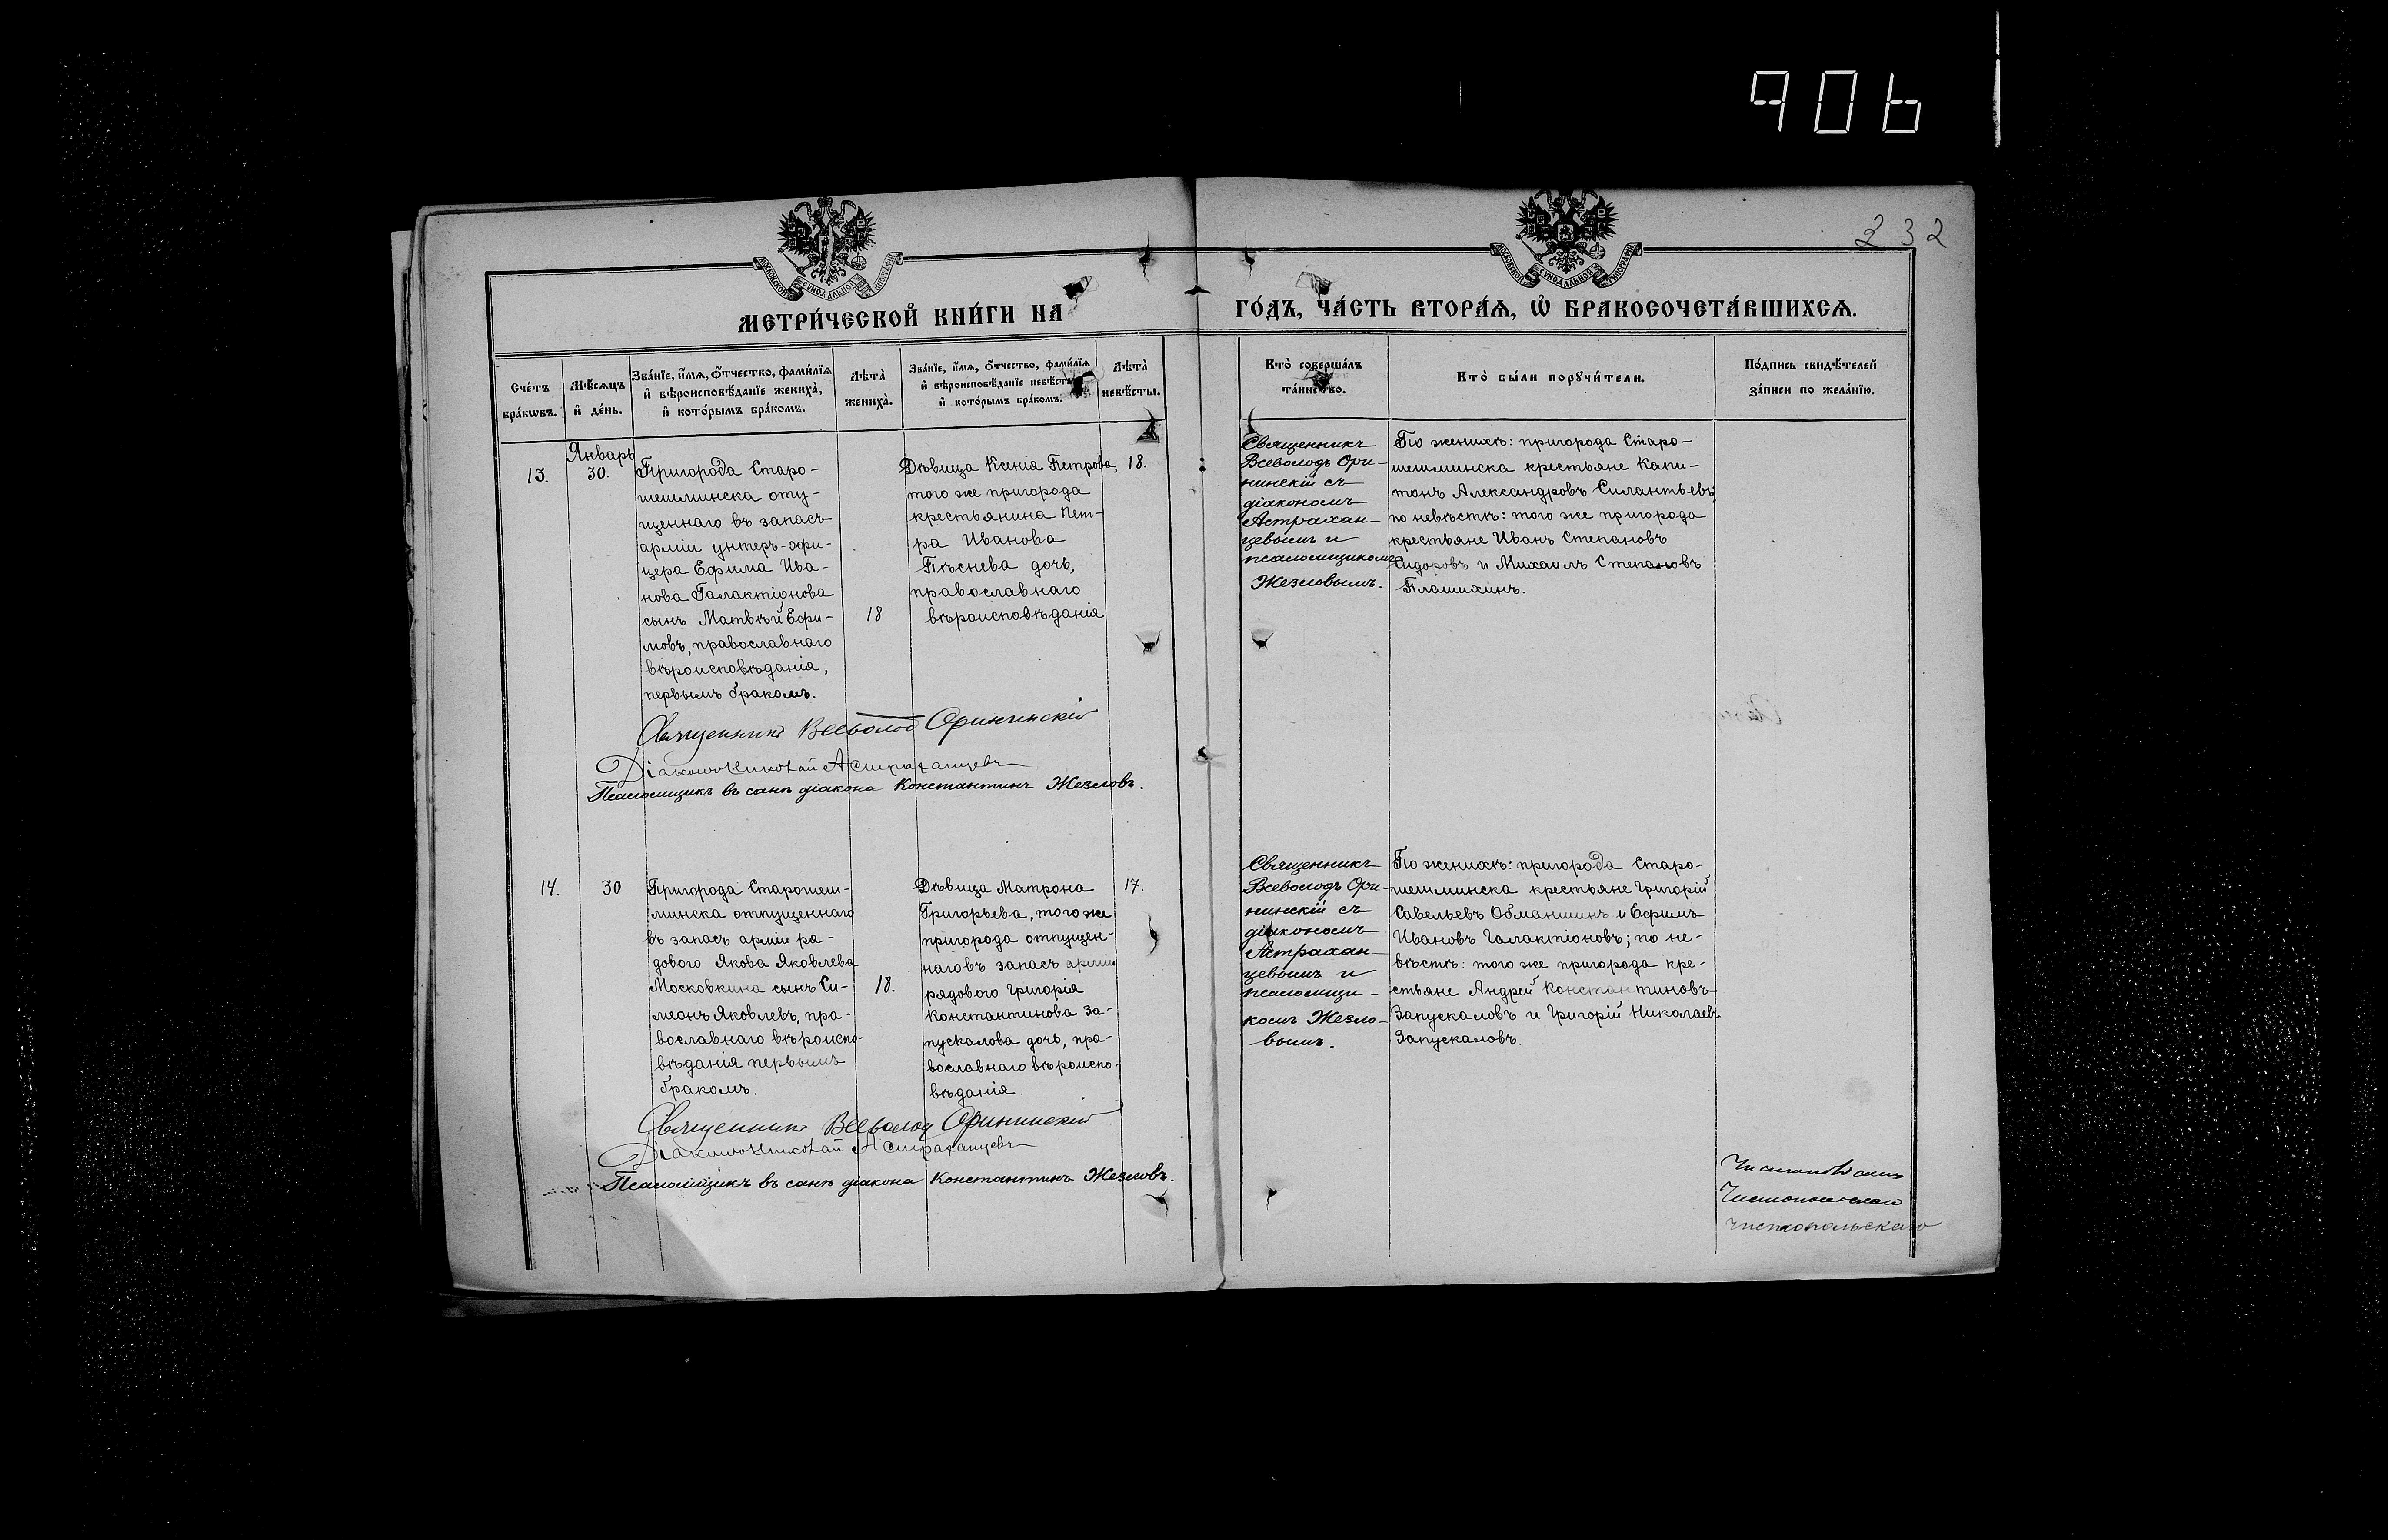 906
232
МЕТРИ́ЧЕСКОЙ КНИ́ГИ НА
ГО́ДЪ, ЧА́СТЬ ВТОРА́Ѧ, Ѽ БРАКОСОЧЕТА́ВШИХСѦ.
Сче́тъ бра́кѡвъ.
Мѣ́сѧцъ и де́нь.
Зва́нїе, и́мѧ, о́тчество, фами́лїѧ и вѣроисповѣ́данїе жениха̀, и кото́рымъ бра́комъ.
Лѣта̀ жениха̀.
Зва́нїе, и́мѧ, о́тчество, фами́лїѧ и вѣроисповѣ́данїе невѣ́сты, и кото́рымъ бра́комъ.
Лѣта̀ невѣ́сты.
Кто̀ соверша́лъ та́инство.
Кто̀ бы́ли порꙋчи́тели.
По́дпись свидѣ́телей за́писи по жела́нїю.
13.
Январь
30.
Пригорода Старо-
шешминска отпу-
щеннаго въ запасъ
арміи унтеръ-офи-
цера Ефима Ива-
нова Галактіонова
сынъ Матвѣй Ефи-
мовъ, православнаго
вѣроисповѣданія,
первымъ бракомъ.
18
Дѣвица Ксенія Петрова,
того же пригорода
крестьянина Пет-
ра Иванова
Пѣснева дочь,
православнаго
вѣроисповѣданія
18.
Священникъ
Всеволодъ Ори-
нинскій съ
діакономъ
Астрахан-
цевымъ и
псаломщикомъ
Жезловымъ.
По женихѣ: пригорода Старо-
шешминска крестьяне Капи-
тонъ Александровъ Силантьевъ,
по невѣстѣ: того же пригорода
крестьяне Иванъ Степановъ
Сидоровъ и Михаилъ Степановъ
Плашихинъ.
Священникъ Всеволод Орининскій
Діаконъ Николай Астраханцевъ
Псаломщикъ въ санѣ діакона Константинъ Жезловъ.
14.
30
Пригорода Старошеш-
минска отпущеннаго
въ запасъ арміи ря-
дового Якова Яковлева
Московкина сынъ Си-
меонъ Яковлевъ, пра-
вославнаго вѣроиспо-
вѣданія первымъ
бракомъ.
18.
Дѣвица Матрона
Григорьева, того же
пригорода отпущен-
наго въ запасъ арміи
рядового Григорія
Константинова За-
пускалова дочь, пра-
вославнаго вѣроиспо-
вѣданія.
17.
Священникъ
Всеволодъ Ори-
нинскій съ
діакономъ
Астрахан-
цевымъ и
псаломщи-
комъ Жезло-
вымъ.
По женихѣ: пригорода Старо-
шешминска крестьяне Григорій
Савельевъ Обманшинъ и Ефимъ
Ивановъ Галактіоновъ; по не-
вѣстѣ: того же пригорода кре-
стьяне Андрей Константиновъ
Запускаловъ и Григорій Николаевъ
Запускаловъ.
Священникъ Всеволод Орининскій
Діаконъ Николай Астраханцевъ
Псаломщикъ въ санѣ діакона Константинъ Жезловъ.
Чистопольскаго